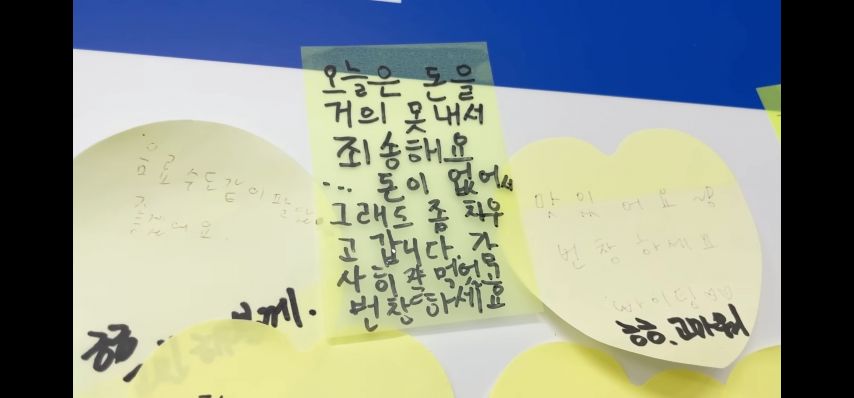 오늘은 돈을
거의 못 내서
죄송해요
... 돈이 없어서
그래도 좀 치우
고 갑니다. 감
사히 잘 먹어욬
번창하세요
음료수도 많이
줄게요.
흥흥.
께.
맛있어요
번창하세요
화이팅
흥흥. 고마워